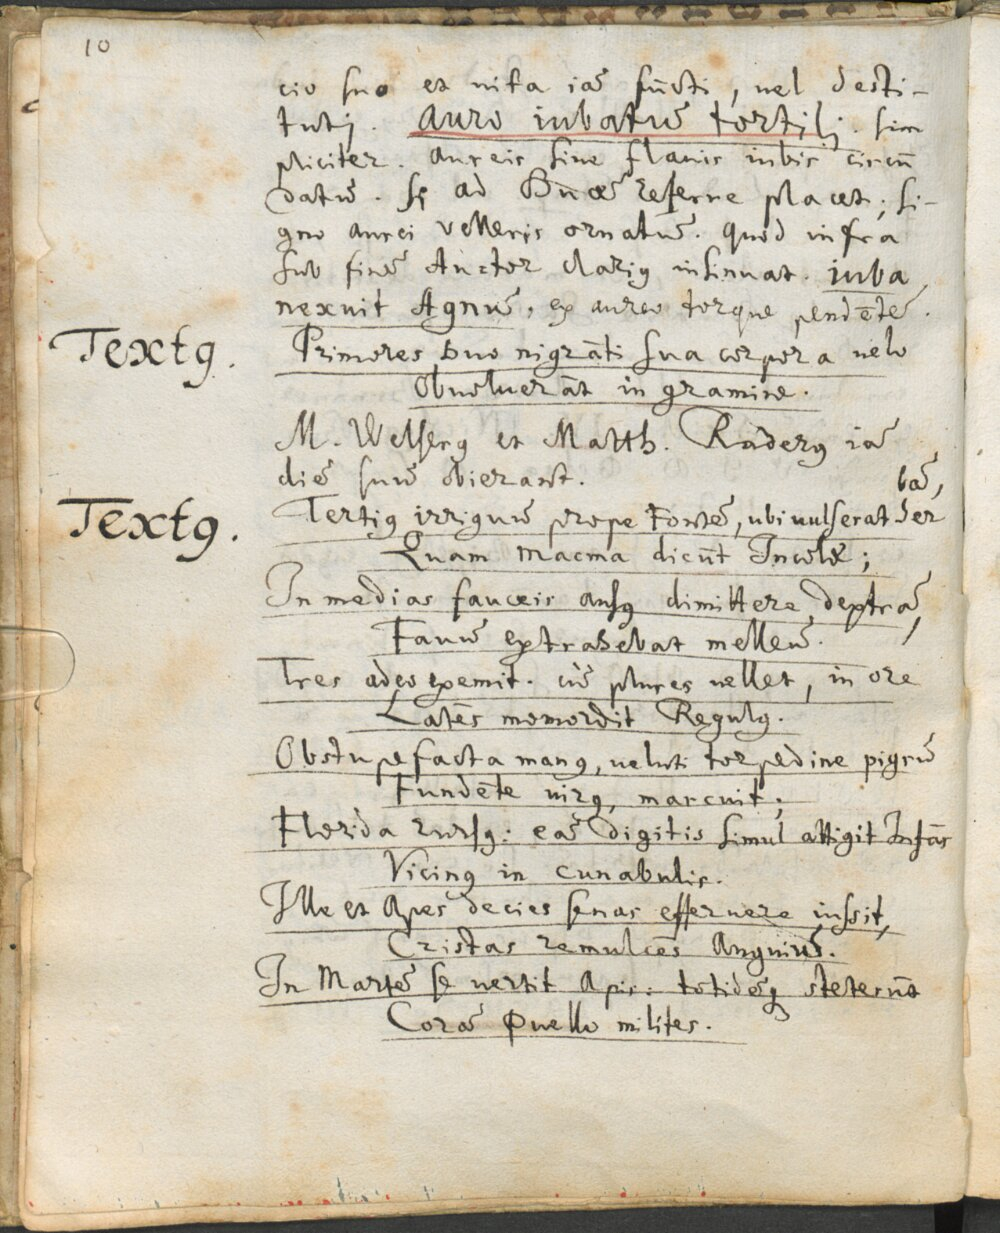 10
cio suo et uita iã fũcti, uel desti-
tutj. Auro iubatũ tortilj. sim
pliciter. Aureis siue flauis iubis circũ
datũ. si ad Dũcẽ referre placet; si-
gno aurei velleris ornatũ. Quod infra
sub finẽ Auctor clariꝰ insinuat. iuba
nexuit Agnũ, ex aureo torque pendẽtẽ.
Textꝰ. Primores duo nigrãti sua corpora uelo
Obuoluerãt in gramine.
M. Welserꝰ et Matth. Raderꝰ iã
diẽ suũ obierant.
Textꝰ. Tertiꝰ irriguũ prope Fontẽ, ubi uulserat her
bã,
Quam macma dicũt Incolæ;
In medias fauceis ausꝰ dimittere dextrã,
Fauũ extrahebat melleũ.
Tres adeo exemit. cũ plures uellet, in ore
Latẽs momordit Regulꝰ.
Obstupefacta manꝰ, ueluti torpedine pigrũ
Fundẽte uirꝰ, marcuit;
Florida rursꝰ: eã digitis simul attigit Infãs
Vicinꝰ in cunabulis.
Ille et Apes decies senas efferuere iussit,
Cristas remulcẽs Anguiũ.
In Martẽ se uertit Apis: totidẽqꝫ steterũt
Corã Puello milites.